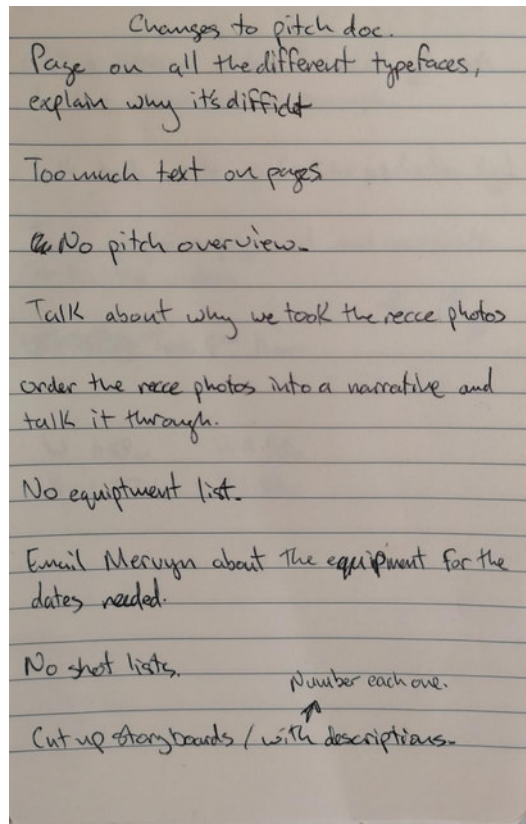 Changes to pitch doc.
Page on all the different typefaces,
explain why it's difficlt
Too much text on pages
No pitch overview.
Talk about why we took the recce photos
order the recce photos into a narrative and
talk it through.
No equiptment list.
Email Mervyn about the equipment for the
dates needed.
No shot lists.
Number each one.
Cut up storyboards / with descriptions.